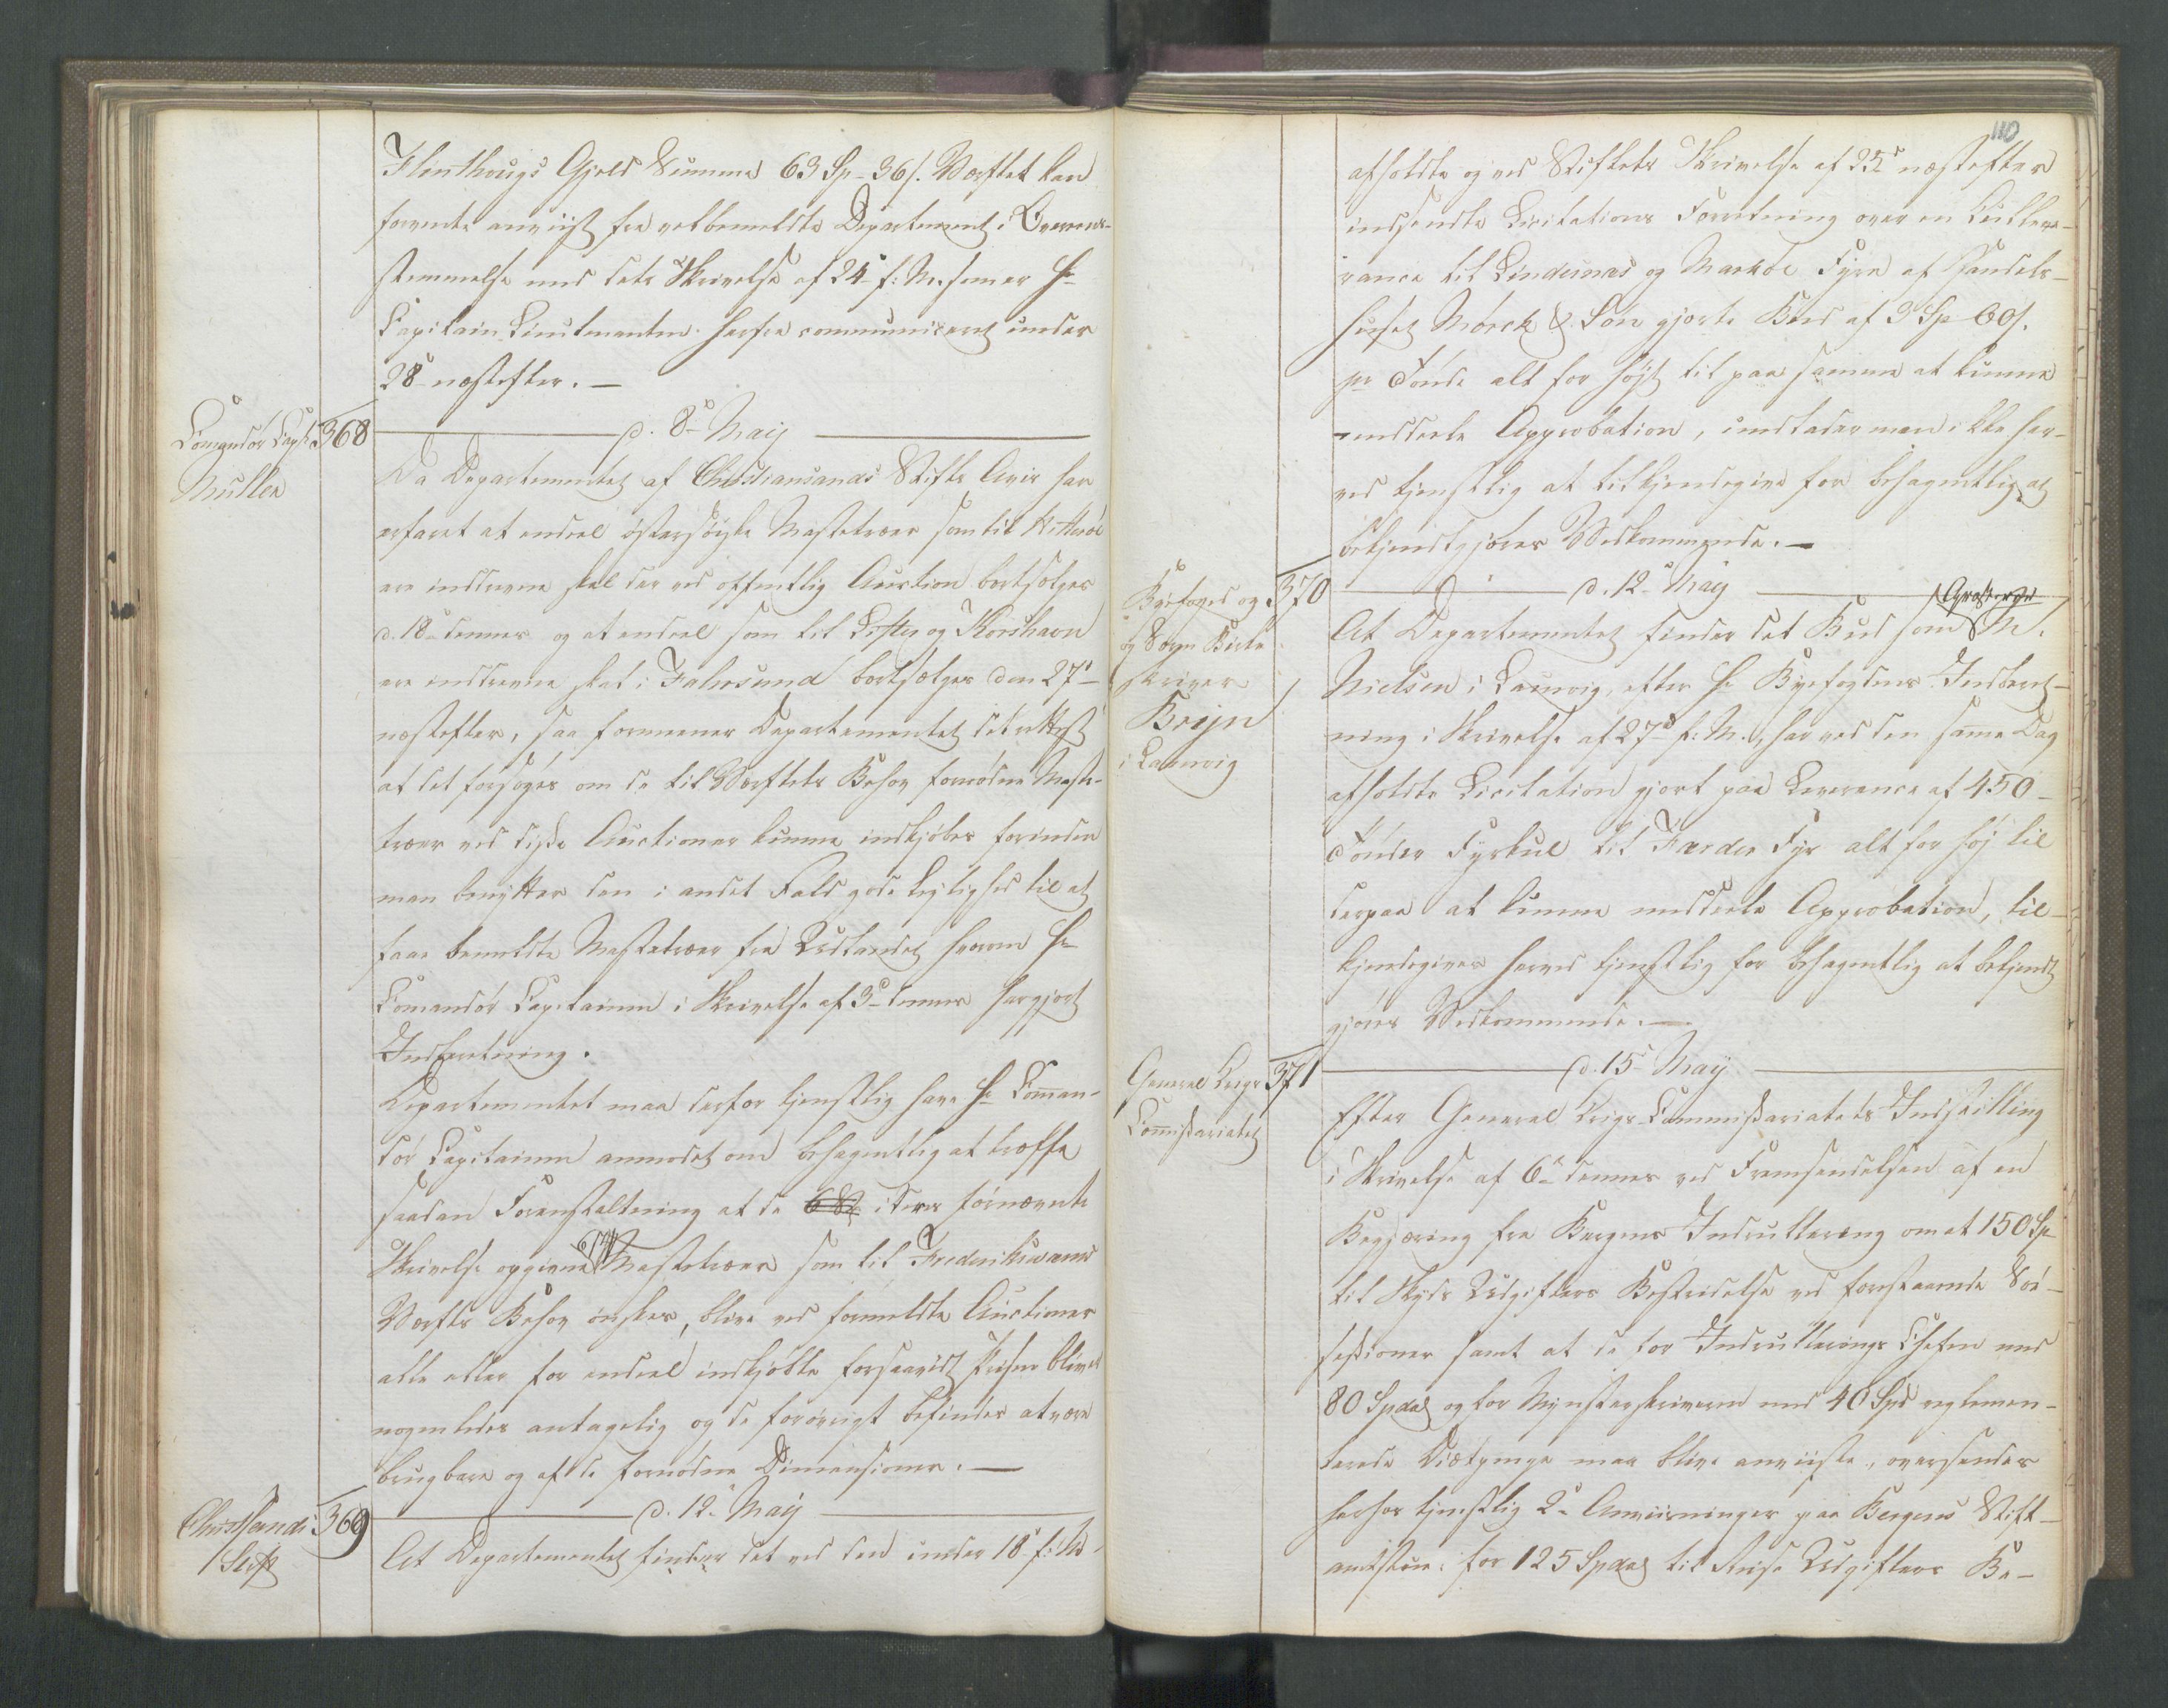 Flinthougs Gjeld Summa 63 Sp - 36 s. Værftet kan
forvente anviist fra velbemeldte Departement i Overens-
stemmelse med dets Skrivelse af 24de f: M. som er Hr
Capitain Lieutnanten herfra communiceret under
28de næstefter. —
Comandör Capt:
Müller
368
d. 8de Maij
Da Departementet af Christiansands Stifts Avis har
erfaret at endeel östersöiske Mastetræer som til Hitteröe
ere inddrevne skal der ved offentlig Auction bortsælges
d. 18de dennes og at endeel som til Lister og Korshavn
ere inddrevne skal i Fahrsund bortsælges den 27de
næstefter, saa formener Departementet det rettest
at det forsöges om de til Værftets Behov fornödne Maste-
træer ved disse Auctioner kunne indkjöbes forinden
man benytter den i andet Fald gode Leylighed til at
faae bemeldte Mastetræer fra Udlandet hvorom Hr
Comandör Capitainen i Skrivelse af 3de dennes har gjort
Indberetning.
Departementet maa derfor tjenstlig have Hr Coman-
dör Capitainen anmodet om behagentligt at træffe
saadan Foranstaltning at de i Deres fornævnte
Skrivelse opgivne Mastetræer som til Frederiksværns
Værfts Behov önskes, blive ved formeldte Auctioner
alle eller for endeel indkjöbte forsaavidt Prisen bliver
nogenledes antagelig og de forövrigt befindes at være
brugbare og af de fornödne Dimensioner. —
Christsands
Stift
369
d. 12te Maij
At Departementet finder det ved den under 18de f: M.
110
afholdte og ved Stiftets Skrivelse af 25de næstefter
indsendte Licitations Forretning over en Kulleve-
rance til Lindesnæs og Marköe Fyre af Handels-
huset Mörch & Sön gjorte Bud af 3 Sp 60 s.
pr Tönde alt for höit til paa samme at kunne
meddeele Approbation, undlader man ikke her-
ved tjenstlig at tilkjendegive for behagentlig at
bekjendtgjöres Vedkommende. —
Byefoged og
og Sorenskriver
Breijn
i Laurvig
370
d. 12te Maij
At Departementet finder det Bud som M.
Nielsen i Laurvig, efter Hr Byefogdens Indberet-
ning i Skrivelse af 27de f: M., har ved den samme Dag
afholdte Licitation gjort paa Leverance af 450
Tönder Fyrkul til Færder Fyr alt for höj til
derpaa at kunne meddeele Approbation, til-
kjendegives herved tjenstlig for behagentlig at bekjendt
gjöres Vedkommende. —
General Krigs
Commissariatet
371
d. 15de Maij
Efter General Krigs-Commissariatets Indstilling
i Skrivelse af 6te dennes ved Fremsendelsen af en
Begjæring fra Bergens Indrullering om at 150 Sp
til Skyds Udgifters Bestridelse ved forestaaende Söe-
sessioner samt at de for Indrullerings Chefen med
80 Spdal og for Mynsterskriveren med 40 Spd reglemen-
terede Diætpenge maa blive anviiste, oversendes
herhos tjenstlig 2de Anviisninger paa Bergens Stift-
amtstue: for 125 Spdal til Reise Udgifters Be-